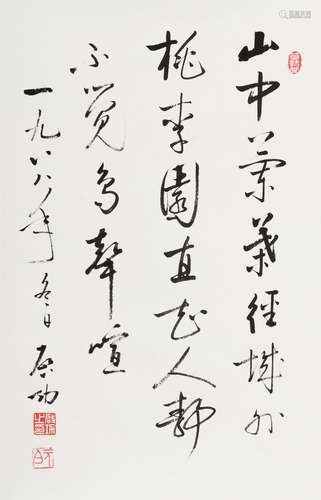 山中蘭葉徑城外
桃李園直知人靜
不覺鳥聲喧
一九八八年冬日啟功